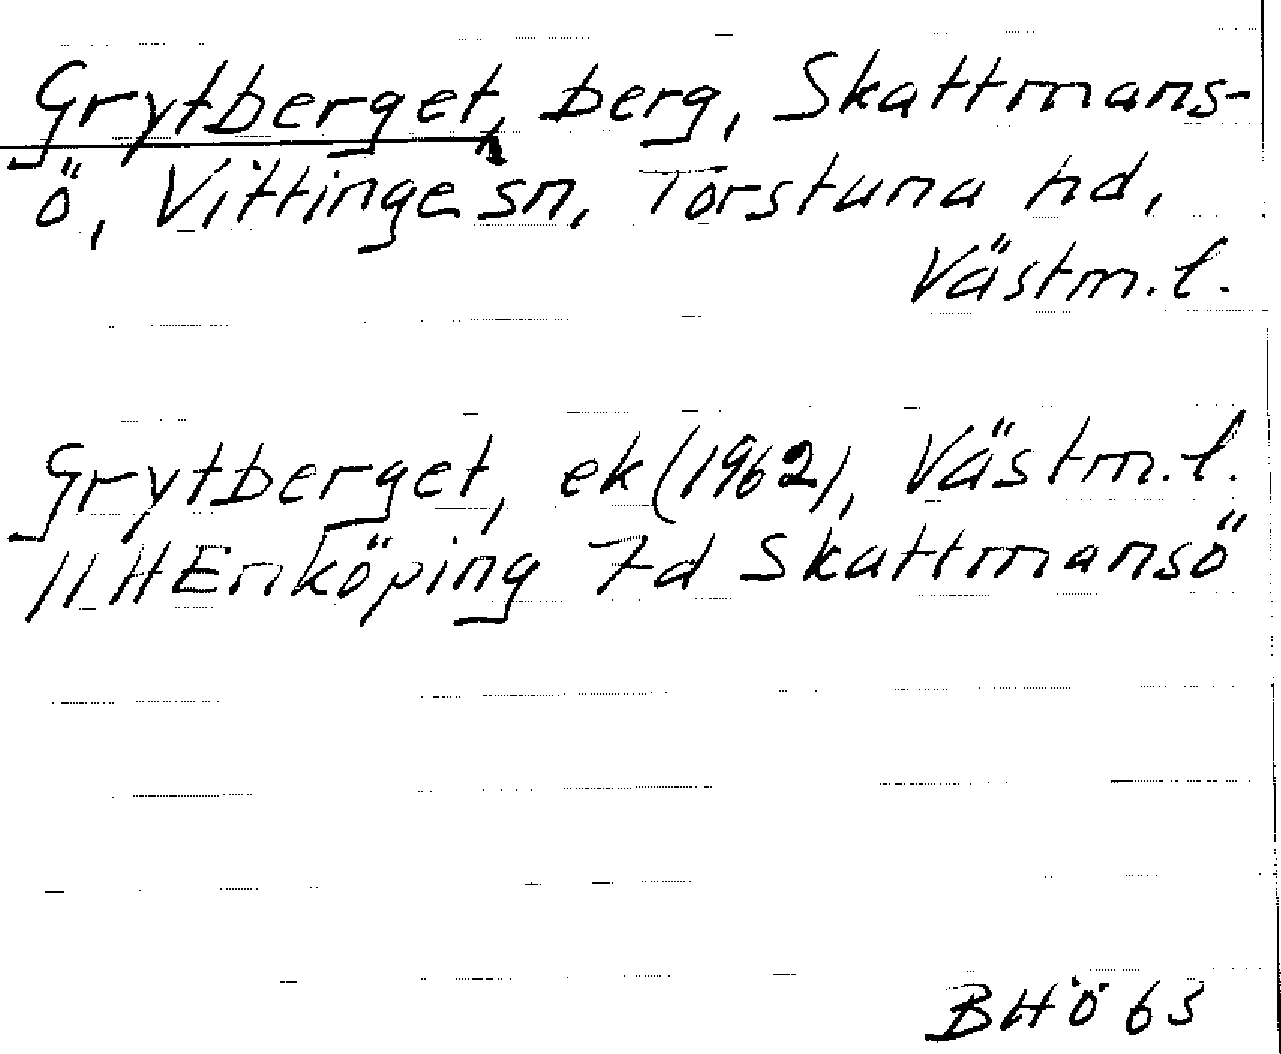 Grytberget, berg, Skattmans-
ö, Vittinge sn, Torstuna hd,
Västm.l.
Grytberget, ek (1962), Västm.l.
11 H Enköping 7d Skattmansö
BHÖ 63